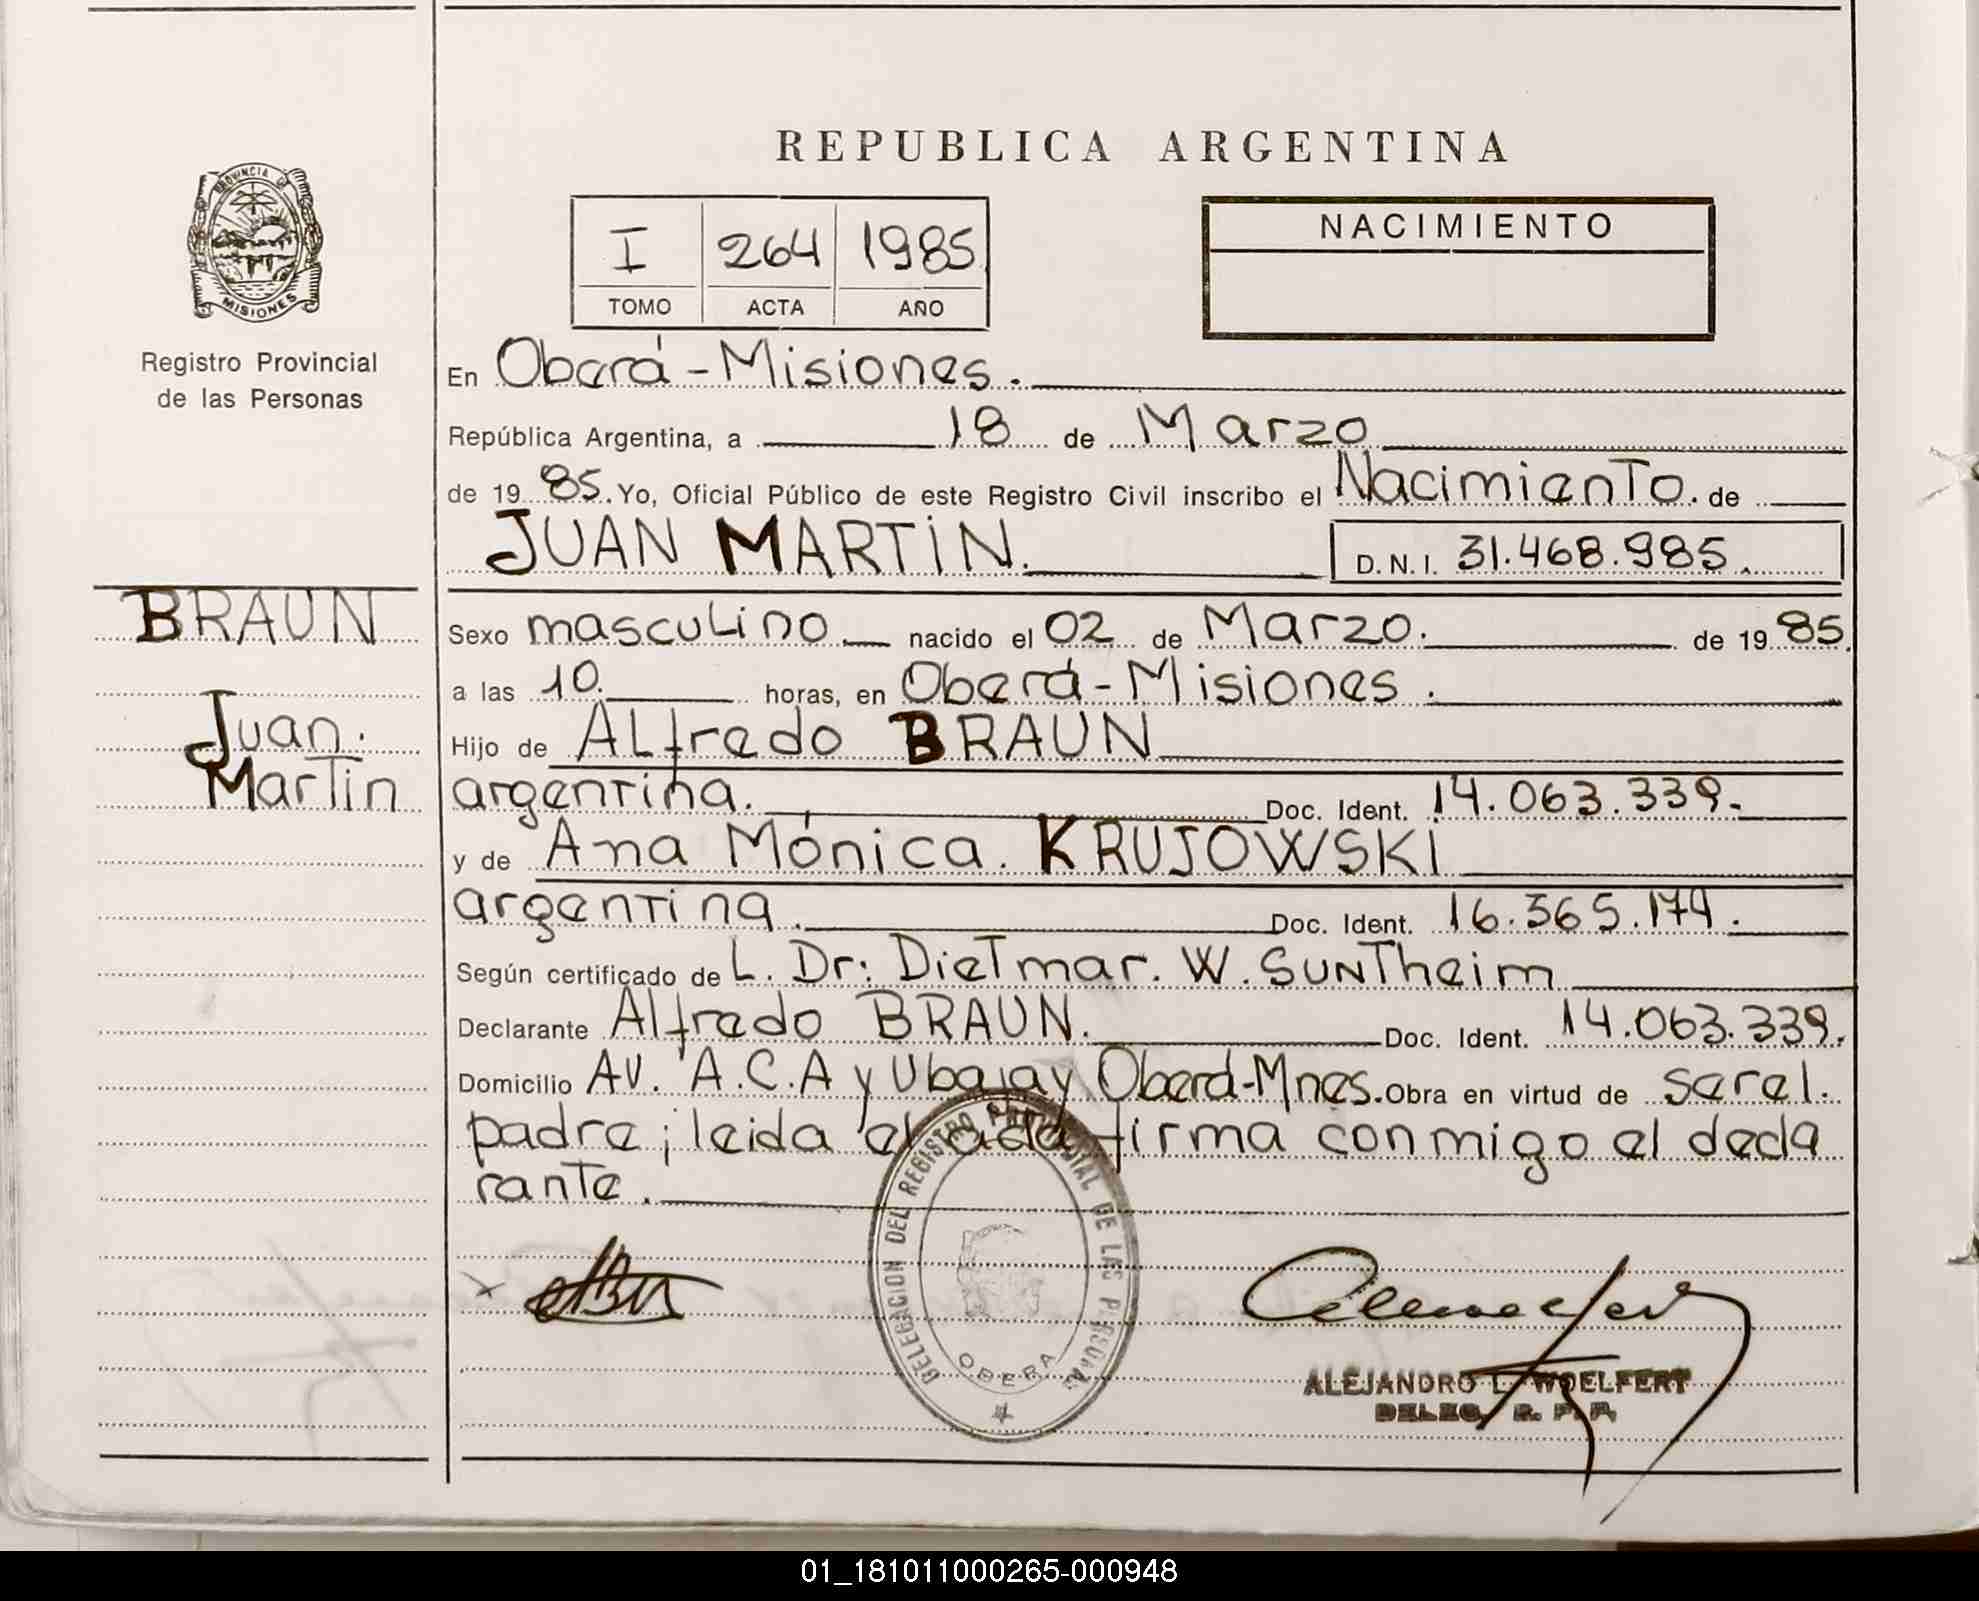 REPUBLICA ARGENTINA
PROVINCIA DE
MISIONES
Registro Provincial
de las Personas
I 264 1985
TOMO ACTA AÑO
NACIMIENTO
En Oberá - Misiones.
República Argentina, a 18 de Marzo
de 19 85. Yo, Oficial Público de este Registro Civil inscribo el Nacimiento. de
JUAN MARTIN. D.N.I. 31.468.985.
BRAUN
Juan.
Martin
Sexo masculino nacido el 02 de Marzo. de 19 85.
a las 10. horas, en Oberá - Misiones.
Hijo de Alfredo BRAUN
argentina. Doc. Ident. 14.063.339.
y de Ana Mónica. KRUJOWSKI
argentina. Doc. Ident. 16.365.174.
Según certificado de L. Dr: Dietmar. W. Suntheim
Declarante Alfredo BRAUN. Doc. Ident. 14.063.339.
Domicilio Av. A.C.A y Ubajay Oberá-Mnes. Obra en virtud de ser el.
padre; leida el acta firma conmigo el decla
rante.
DELEGACION DEL REGISTRO PROVINCIAL DE LAS PERSONAS
OBERA
ALEJANDRO L. WOELFERT
DELEG. R. P. P.
01_181011000265-000948